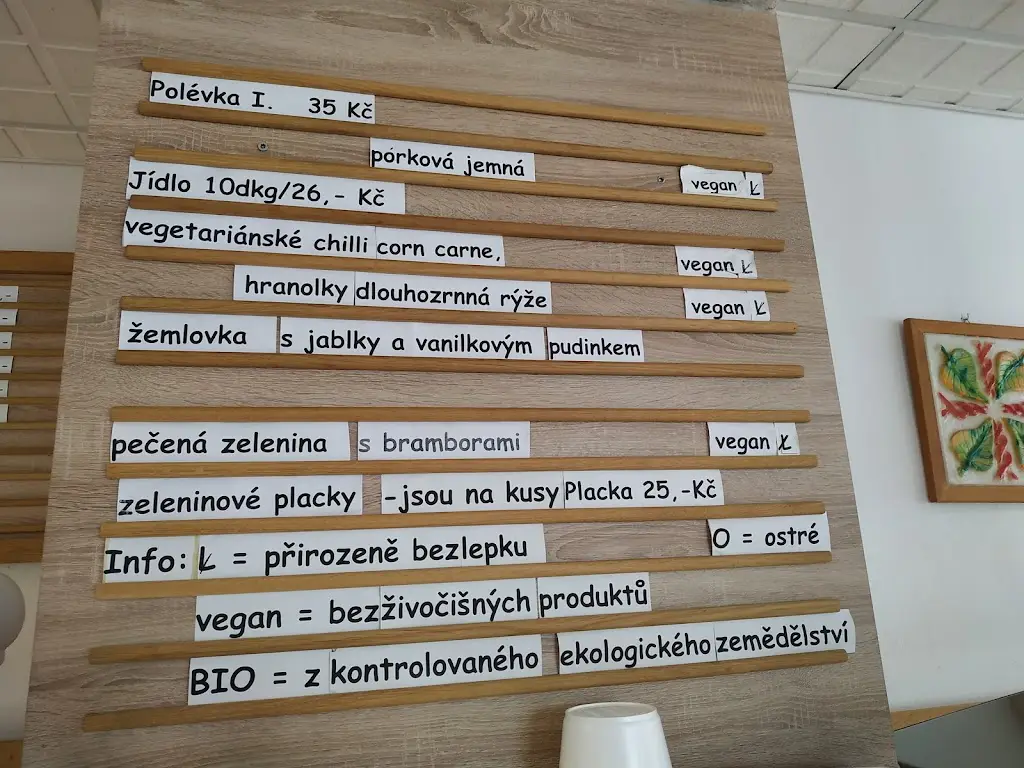 Polévka I. 35 Kč
pórková jemná vegan Ł
Jídlo 10dkg/26,- Kč
vegetariánské chilli corn carne, vegan Ł
hranolky dlouhozrnná rýže vegan Ł
žemlovka s jablky a vanilkovým pudinkem
pečená zelenina s bramborami vegan Ł
zeleninové placky -jsou na kusy Placka 25,-Kč
Info: Ł = přirozeně bezlepku O = ostré
vegan = bezživočišných produktů
BIO = z kontrolovaného ekologického zemědělství